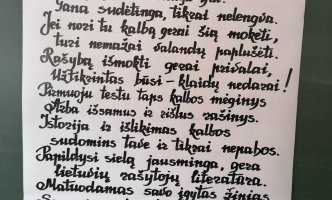 Yana sudėtinga, tikrai nelengva.
Jei nori tu kalbą gerai šią mokėti,
turi nemažai valandų paplušėti.
Rašybą išmokti gerai privalai,
Užtikrintas būsi – klaidų nedarai!
Pirmuoju testu taps kalbos mėginys
Arba išsamus ir rišlus rašinys.
Istorija ir išlikimas kalbos
sudomins tave ir tikrai nepabos.
Papildysi sielą jausminga, gera
lietuvių rašytojų literatūra.
Matuodamas savo įgytas žinias